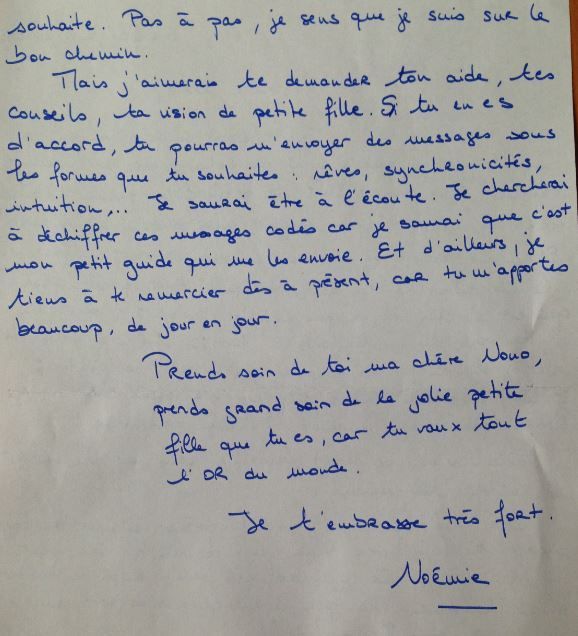 souhaite. Pas à pas, je sens que je suis sur le
bon chemin.
Mais j'aimerais te demander ton aide, tes
conseils, ta vision de petite fille. Si tu en es
d'accord, tu pourras m'envoyer des messages sous
les formes que tu souhaites : rêves, synchronicités,
intuition,... Je saurai être à l'écoute. Je chercherai
à déchiffrer ces messages codés car je saurai que c'est
mon petit guide qui me les envoie. Et d'ailleurs, je
tiens à te remercier dès à présent, car tu m'apportes
beaucoup, de jour en jour.
Prends soin de toi ma chère Nono,
prends grand soin de la jolie petite
fille que tu es, car tu vaux tout
l'OR du monde.
Je t'embrasse très fort.
Noémie